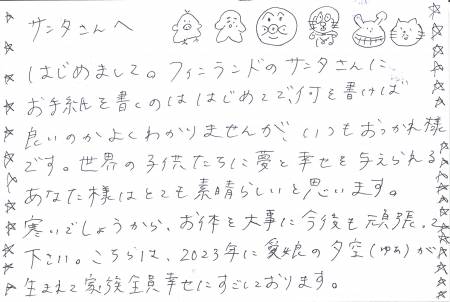 サンタさんへ
はじめまして。フィンランドのサンタさんに
お手紙を書くのははじめてで、何を書けば
良いのかよくわかりませんが、いつもおつかれ様
です。世界の子供たちに夢と幸せを与えられる
あなた様はとても素晴らしいと思います。
寒いでしょうから、お体を大事に今後も頑張って
下さい。こちらは、2023年に愛娘の夕空(ゆあ)が
生まれて家族全員幸せにすごしております。